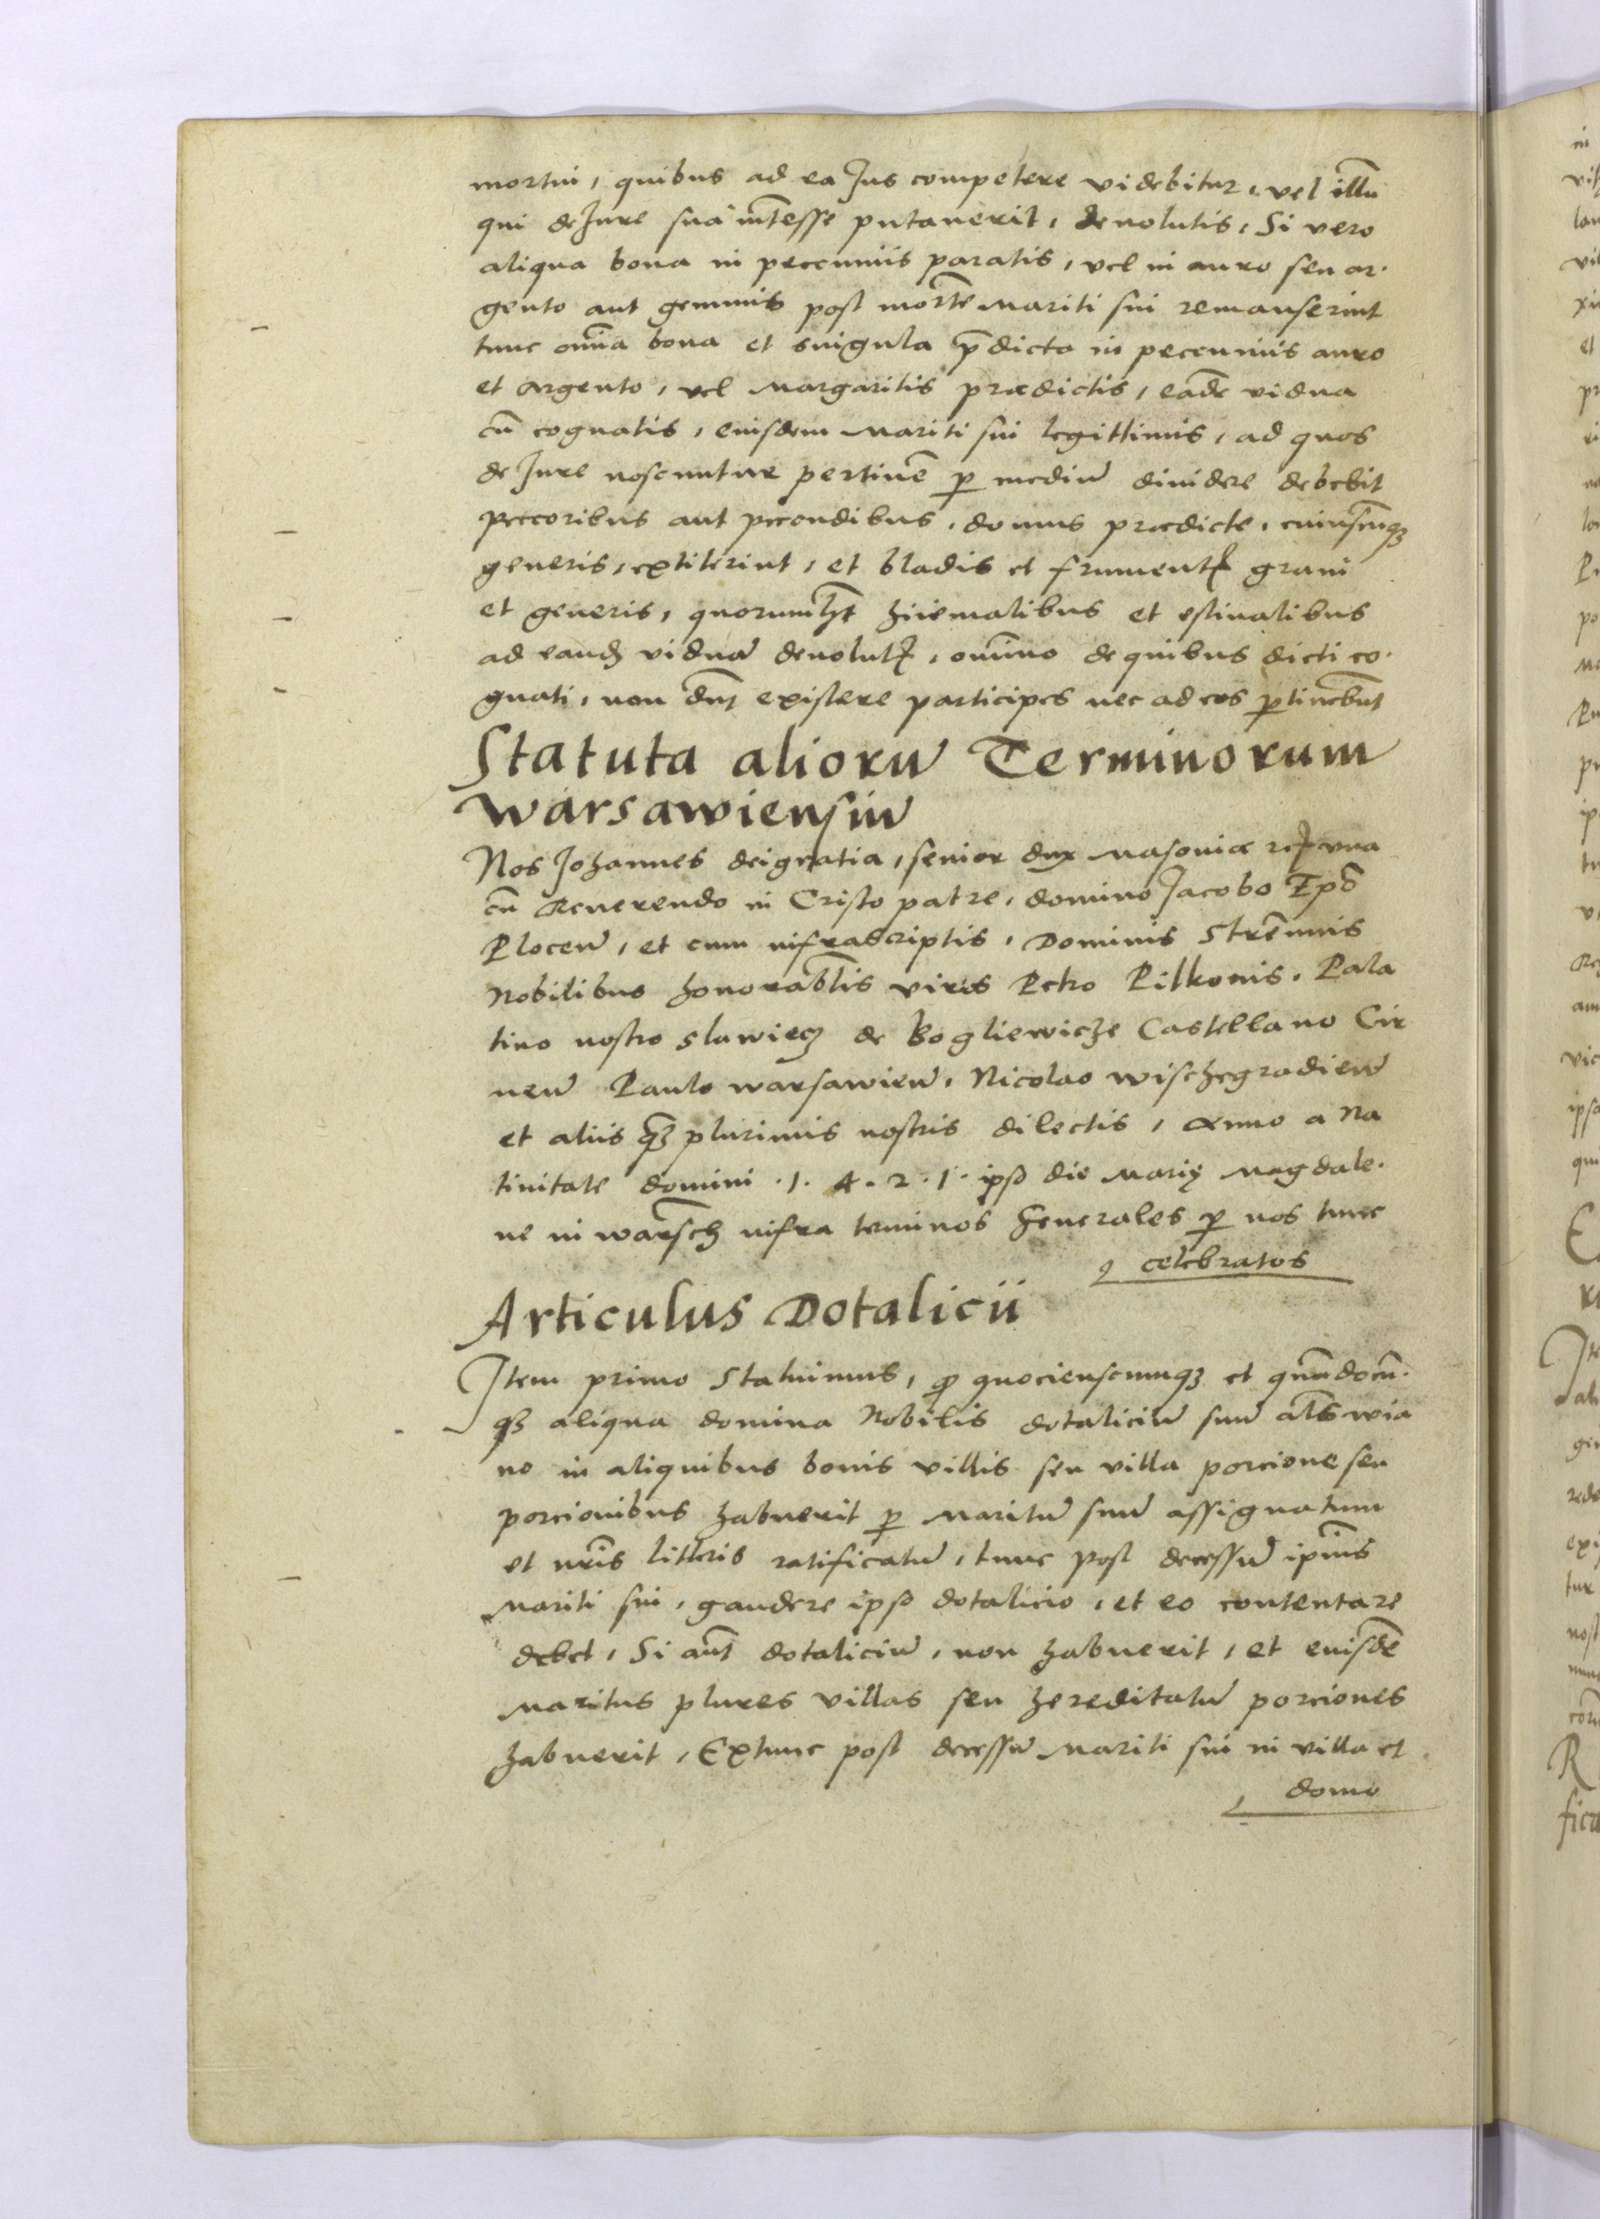 mortui, quibus ad ea Jus competere videbitur, vel illū
qui de Jure sua inte͞esse putaverit, devolutis, Si vero
aliqua bona in pecuniis paratis, vel in auro seu ar-
gento aut gemmis post morte͞ Mariti sui remanserint
tunc om̄ia bona et singula p̄dicta in pecuniis auro
et Argento, vel Margaritis prædictis, eade͞ vidua
cū cognatis, eiusdem Mariti sui legittimis, ad quos
de Jure noscuntur pertine͞ ꝑ mediū dividere debebit
Peccoribus aut pecudibus, domus prædicte, cuiuscūqꝫ
generis, extiterint, et bladis et frumentꝭ grani
et generis, quorumlꝫt hiiemalibus et estivalibus
ad eandꝫ viduā devolutꝭ, om̄ino de quibus dicti co-
gnati, non dn͞t existere participes nec ad eos ꝑtinebūt
Statuta aliorū Terminorum
Warsawiensiū
Nos Johannes dei gratia, senior dux Masoviæ zcꝭ una
cū Reverendo in Cristo patre, domino Jacobo Ep̄o
Plocen̄, et cum infrascriptis, Dominis Strēnuis
Nobilibus honorabl̄is viris Petro Pilkonis, Pala
tino nostro Slawiecz de Bogliewicze Castellano Cir
nen̄ Paulo warsawien̄, Nicolao wischegradien̄
et aliis qꝫ plurimis nostris dilectis, Anno a Na
tivitate domini .1.4.2.1. ipso die Marię Magdale-
ne in warsch infra terminos Generales ꝑ nos tunc
celebratos
Articulus Dotalicii
Item primo Statuimus, ꝙ quocienscumqꝫ et quandocū-
qꝫ aliqua domina Nobilis dotaliciū suū al̄s wia
no in aliquibus bonis villis seu villa porcione seu
porcionibus habuerit ꝑ Maritū suū assignatum
et nr̄is litteris ratificatū, tunc post decessū ip̄ius
Mariti sui, gaudere ipso dotalicio, et eo contentare
debet, Si aūt dotaliciū, non habuerit, et eiusde͞
Maritus plures villas seu hereditatū porciones
habuerit, Extunc post decessū Mariti sui in villa et
domo